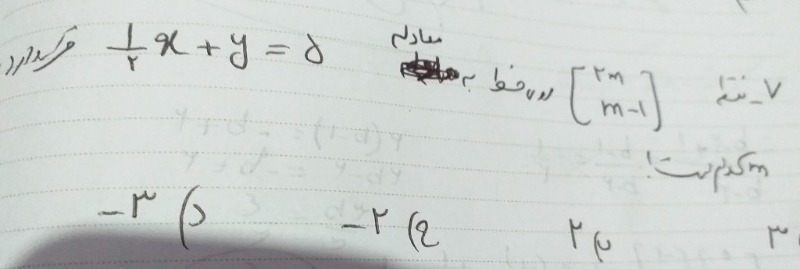 ۷- نقطه [۲m
m-۱] روی خط به معادله ۱/۲ x + y = ۵ قرار دارد.
m کدام است؟
۳ ب) ۲ ج) -۲ د) -۳